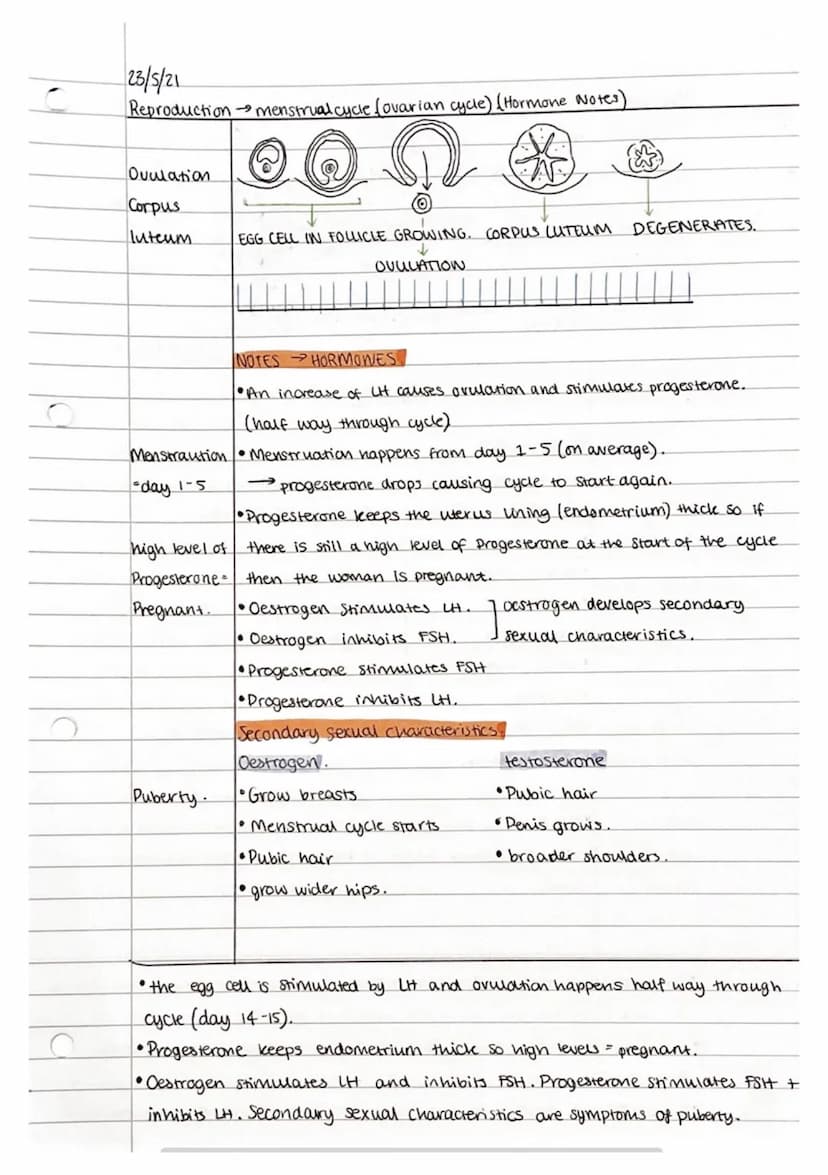 23/5/21
Reproduction → menstrual cycle (ovarian cycle) (Hormone Notes)
Ovulation
Corpus
luteum
EGG CELL IN FOLLICLE GROWING. CORPUS LUTEUM DEGENERATES.
OVULATION
NOTES → HORMONES.
•An increase of LH causes ovulation and stimulates progesterone.
(half way through cycle)
Menstraution • Menstruation happens from day 1-5 (on average).
=day 1-5 → progesterone drops causing cycle to start again.
•Progesterone keeps the uterus lining (endometrium) thick so if
high level of there is still a high level of Progesterone at the start of the cycle
Progesterone= then the woman is pregnant.
Pregnant. • Oestrogen stimulates LH. ] oestrogen develops secondary
• Oestrogen inhibits FSH. sexual characteristics.
•Progesterone stimulates FSH
•Progesterone inhibits LH.
Secondary sexual characteristics.
Oestrogen. testosterone
Puberty. •Grow breasts •Pubic hair
• Menstrual cycle starts • Penis grows.
•Pubic hair • broader shoulders.
• grow wider hips.
•the egg cell is stimulated by LH and ovulation happens half way through
cycle (day 14-15).
•Progesterone keeps endometrium thick so high levels = pregnant.
•Oestrogen stimulates LH and inhibits FSH. Progesterone stimulates FSH +
inhibits LH. Secondary sexual characteristics are symptoms of puberty.